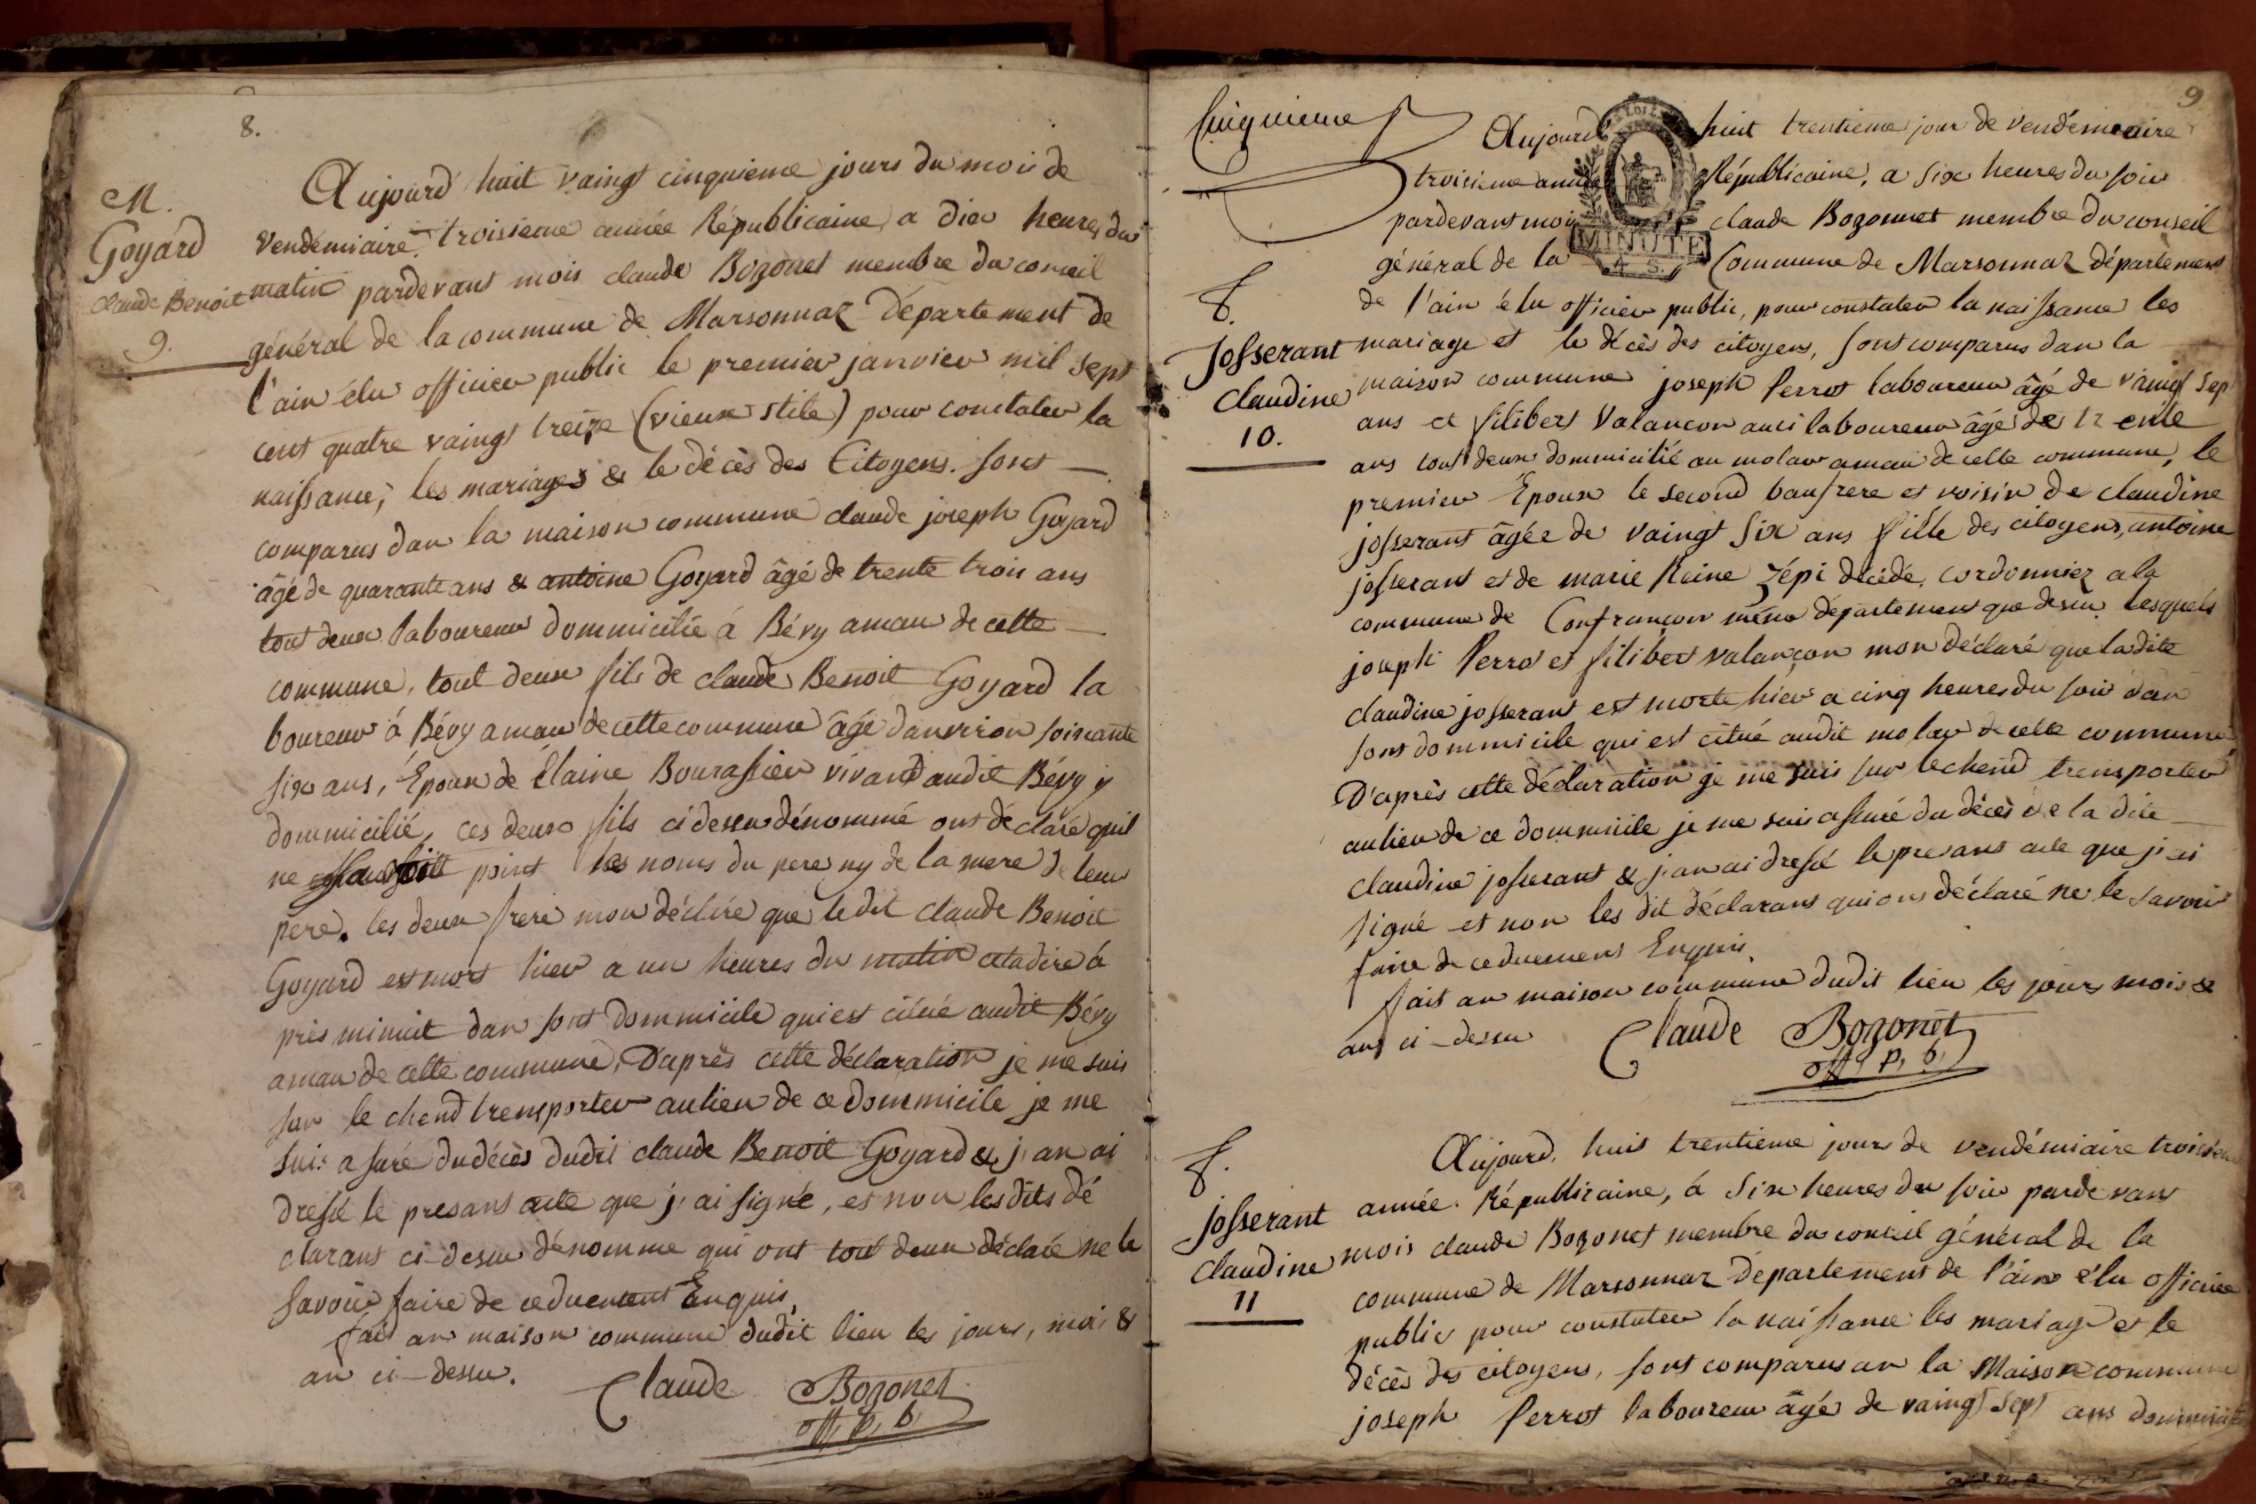 8.
M.
Goyard
claude Benoit
9.
Aujourd'huit vaingt cinquieme jours du mois de
vendémiaire troisieme année Républicaine, a dieu heures du
matin pardevant mois claude Bozonet membre du conseil
général de la commune de Marsonnaz Département de
l'ain élu officier public le premier janvier mil sept
cent quatre vaingt treize (vieux stile) pour constater la
naissance, les mariages & le décès des Citoyens. sont
comparus dan la maison commune claude joseph Goyard
âgé de quarante ans & antoine Goyard âgé de trente trois ans
tout deux laboureur dommicilié à Bévy amau de cette
commune, tout deux fils de claude Benoit Goyard la
boureur à Bévy amau de cette commune âgé danviron soixante
six ans, Epoux de Elaine Bourassier vivant audit Bévy y
dommicilié, ces deux fils ci dessu dénommé ont déclaré quil
ne point les noms du pere ny de la mere de leur
pere. les deux frere mon déclare que ledit claude Benoit
Goyard est mort hier a un heures du matin cetadire à
près minuit dan sont dommicile qui est citué audit Bévy
amau de cette commune, D'après cette déclaration je me suis
sur le chend tremsporter au lieu de ce dommicile je me
suis a suré du décès dudit claude Benoit Goyard & j'an ai
dressé le presans acte que j'ai signé, et non les dits dé
clarans ci-dessu dénomme qui ont tout deux déclaré ne le
savoir faire de ceduement Enquis,
fait an maison commune dudit lieu les jours, mois &
an ci-dessu.
Claude Bozonet
off. p. b.
9
Cinquieme
Aujourd huit trentieme jour de vendémiaire
troisieme année Républicaine, a six heures du soir
pardevant mois claude Bozonnet membre du conseil
MINUTE
général de la Commune de Marsonnaz département
de l'ain élu officier public, pour constater la naissance les
f.
Josserant
claudine
10.
mariage et le décès des citoyens, sont comparus dan la
maison commune joseph Perrot laboureur âgé de vaingt sep
ans et filibert Valancon auci laboureur âgé de trente
ans tout deux dommicilié au molar amau de cette commune, le
premier Epoux le second baufrere et voisin de claudine
josserant âgée de vaingt six ans fille des citoyens antoine
josserant et de marie Reine Zépi décédé, cordonniez a la
commune de Confrançon même département que dessu lesquels
joseph Perrot et filibert valançon mon déclaré que ladite
claudine josserant est morte hier a cinq heures du soir dan
sont dommicile qui est citué audit molar de cette commune,
D'après cette déclaration je me suis sur le chend tremsporter
au lieu de ce dommicile je me suis assuré du décès de la dite
claudine josserant & j'an ai dressé le presans acte que j'ai
signé et non les dit déclarans qui ons déclaré ne le savoir
faire de ceduement Enquis,
fait an maison commune dudit lieu les jours mois &
ans ci-dessu
Claude Bozonet
off. p. b.
f.
josserant
claudine
11
Aujourd, huit trentieme jours de vendémiaire troisieme
année Républicaine, à six heures du soir pardevant
mois claude Bozonet membre du conseil général de la
commune de Marsonnaz Département de l'ain élu officier
public pour constater la naissance les mariage et le
décès des citoyens, sont comparus an la Maison commune
joseph Perrot laboureur âgé de vaingt sept ans dommicilié